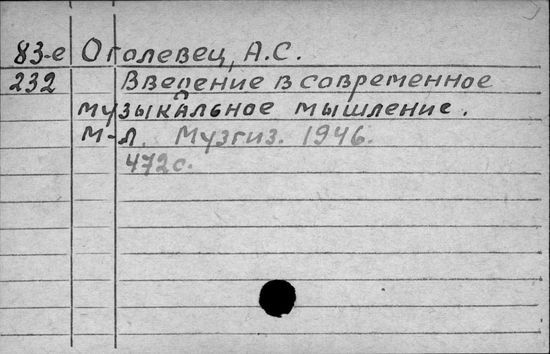 83-е Оголевец, А.С.
232 Введение в современное
музыкальное мышление.
М-Л. Музгиз. 1946.
472с.